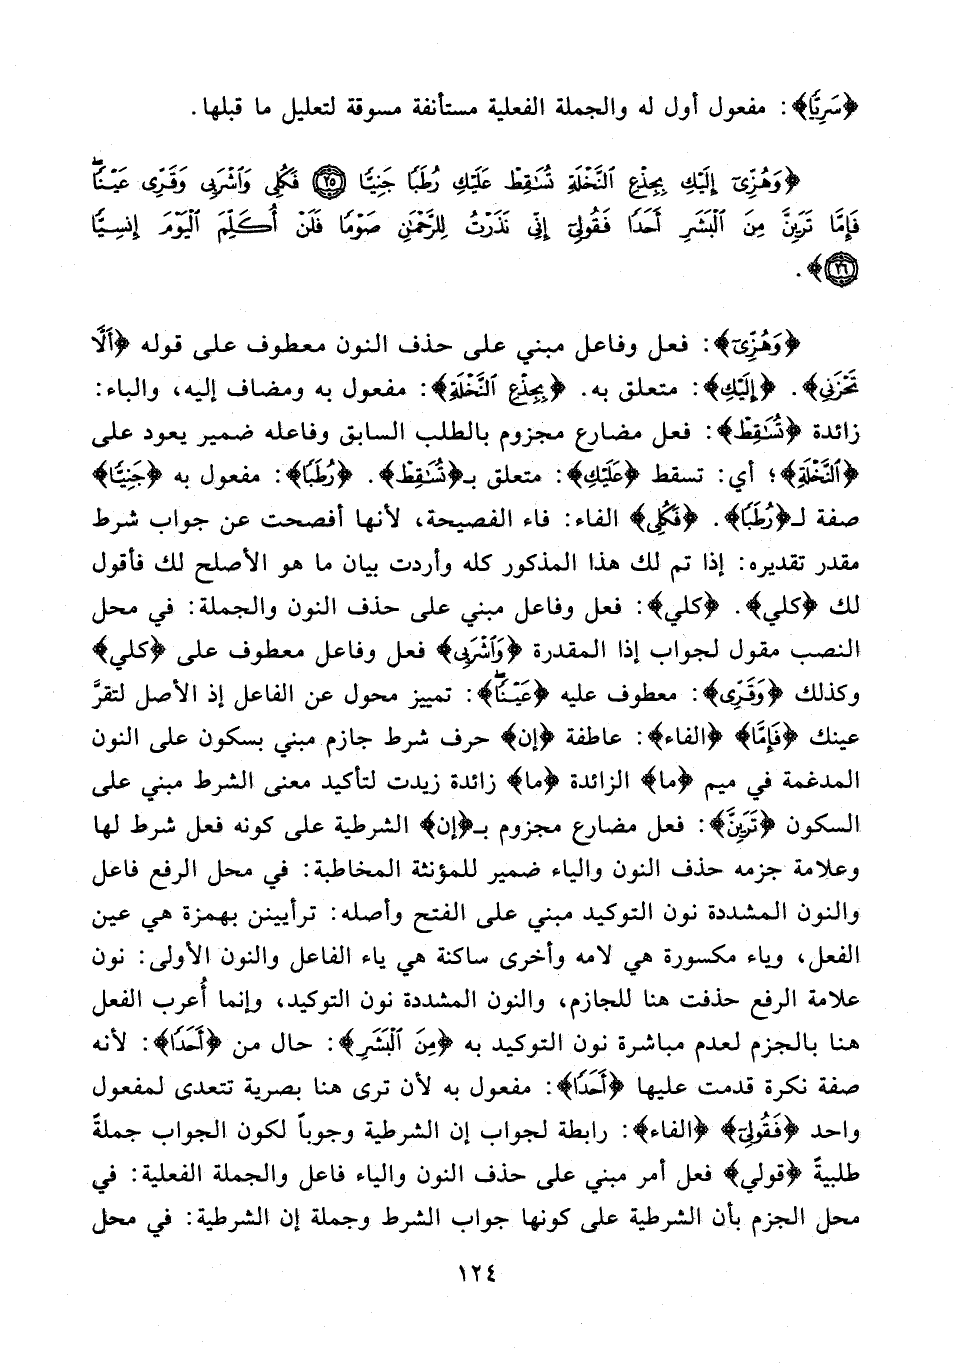 ﴿سَرِيًّا﴾: مفعول أول له والجملة الفعلية مستأنفة مسوقة لتعليل ما قبلها.
﴿وَهُزِّىٓ إِلَيْكِ بِجِذْعِ ٱلنَّخْلَةِ تُسَٰقِطْ عَلَيْكِ رُطَبًا جَنِيًّا ﴿٢٥﴾ فَكُلِى وَٱشْرَبِى وَقَرِّى عَيْنًا
فَإِمَّا تَرَيِنَّ مِنَ ٱلْبَشَرِ أَحَدًا فَقُولِىٓ إِنِّى نَذَرْتُ لِلرَّحْمَٰنِ صَوْمًا فَلَنْ أُكَلِّمَ ٱلْيَوْمَ إِنسِيًّا
﴿٢٦﴾﴾.
﴿وَهُزِّىٓ﴾: فعل وفاعل مبني على حذف النون معطوف على قوله ﴿أَلَّا
تَحْزَنِى﴾. ﴿إِلَيْكِ﴾: متعلق به. ﴿بِجِذْعِ ٱلنَّخْلَةِ﴾: مفعول به ومضاف إليه، والباء:
زائدة ﴿تُسَٰقِطْ﴾: فعل مضارع مجزوم بالطلب السابق وفاعله ضمير يعود على
﴿ٱلنَّخْلَةِ﴾؛ أي: تسقط ﴿عَلَيْكِ﴾: متعلق بـ﴿تُسَٰقِطْ﴾. ﴿رُطَبًا﴾: مفعول به ﴿جَنِيًّا﴾
صفة لـ﴿رُطَبًا﴾. ﴿فَكُلِى﴾ الفاء: فاء الفصيحة، لأنها أفصحت عن جواب شرط
مقدر تقديره: إذا تم لك هذا المذكور كله وأردت بيان ما هو الأصلح لك فأقول
لك ﴿كلي﴾. ﴿كلي﴾: فعل وفاعل مبني على حذف النون والجملة: في محل
النصب مقول لجواب إذا المقدرة ﴿وَٱشْرَبِى﴾ فعل وفاعل معطوف على ﴿كلي﴾
وكذلك ﴿وَقَرِّى﴾: معطوف عليه ﴿عَيْنًا﴾: تمييز محول عن الفاعل إذ الأصل لتقرَّ
عينك ﴿فَإِمَّا﴾ ﴿الفاء﴾: عاطفة ﴿إن﴾ حرف شرط جازم مبني بسكون على النون
المدغمة في ميم ﴿ما﴾ الزائدة ﴿ما﴾ زائدة زيدت لتأكيد معنى الشرط مبني على
السكون ﴿تَرَيِنَّ﴾: فعل مضارع مجزوم بـ﴿إن﴾ الشرطية على كونه فعل شرط لها
وعلامة جزمه حذف النون والياء ضمير للمؤنثة المخاطبة: في محل الرفع فاعل
والنون المشددة نون التوكيد مبني على الفتح وأصله: ترأيينن بهمزة هي عين
الفعل، وياء مكسورة هي لامه وأخرى ساكنة هي ياء الفاعل والنون الأولى: نون
علامة الرفع حذفت هنا للجازم، والنون المشددة نون التوكيد، وإنما أُعرب الفعل
هنا بالجزم لعدم مباشرة نون التوكيد به ﴿مِنَ ٱلْبَشَرِ﴾: حال من ﴿أَحَدًا﴾: لأنه
صفة نكرة قدمت عليها ﴿أَحَدًا﴾: مفعول به لأن ترى هنا بصرية تتعدى لمفعول
واحد ﴿فَقُولِىٓ﴾ ﴿الفاء﴾: رابطة لجواب إن الشرطية وجوباً لكون الجواب جملةً
طلبيةً ﴿قولي﴾ فعل أمر مبني على حذف النون والياء فاعل والجملة الفعلية: في
محل الجزم بأن الشرطية على كونها جواب الشرط وجملة إن الشرطية: في محل
١٢٤